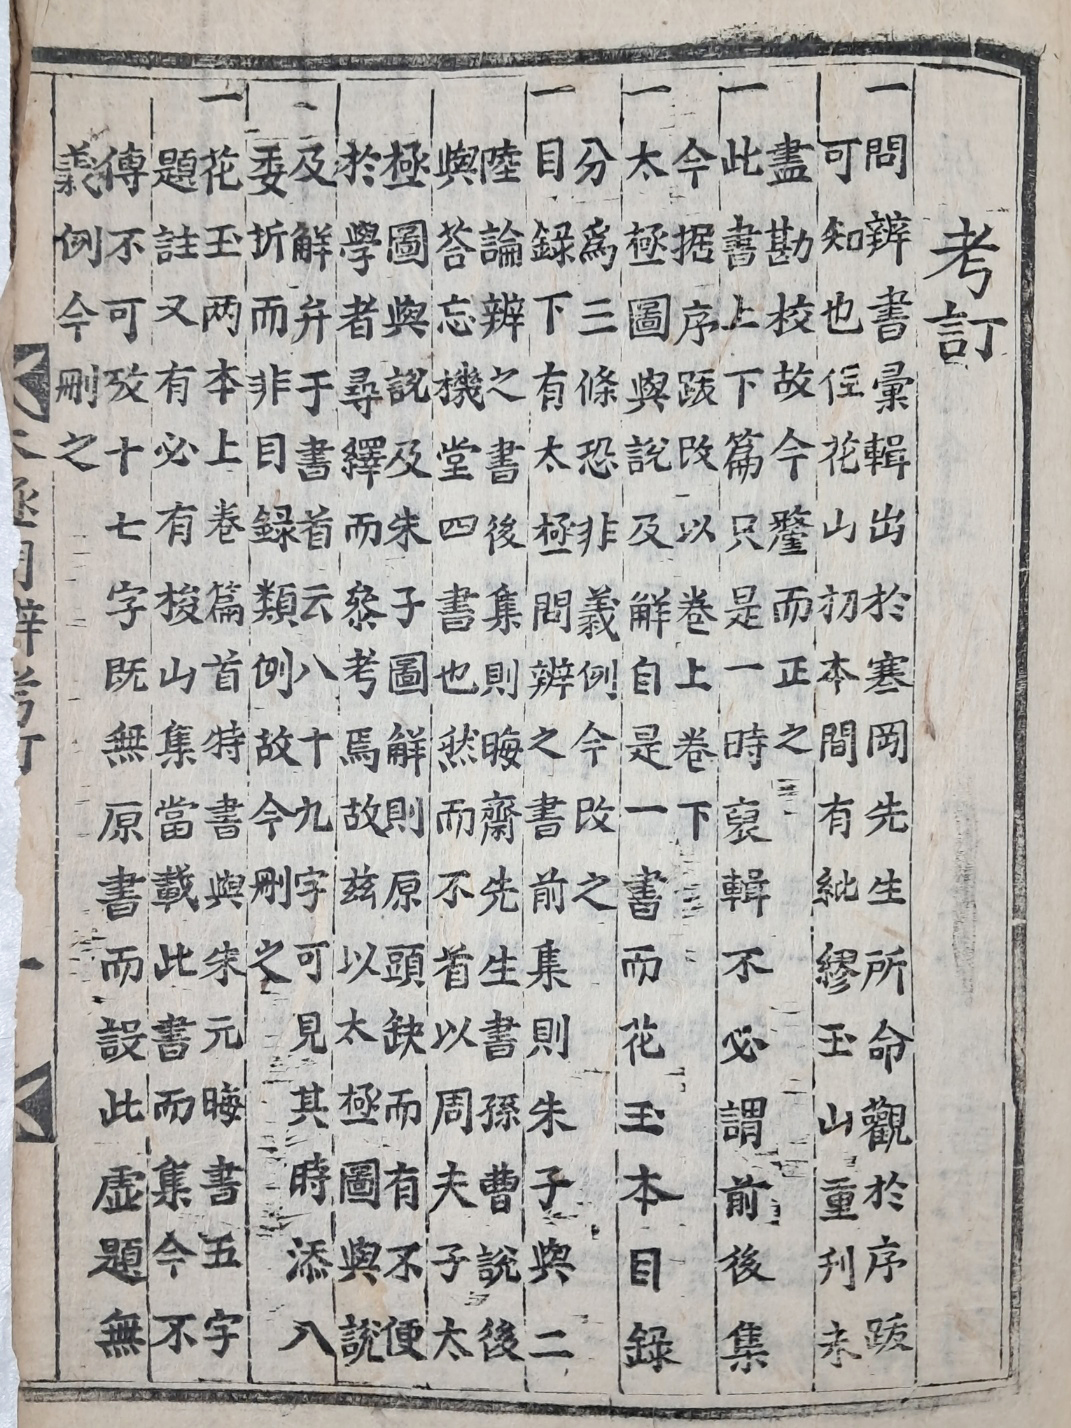 考訂
一問辨書彙輯出於寒岡先生所命觀於序跋
可知也但花山初本間有紕繆玉山重刊未
盡勘校故今釐而正之
一此書上下篇只是一時裒輯不必謂前後集
今据序跋改以卷上卷下
一太極圖與說及解自是一書而花玉本目録
分爲三條恐非義例今改之
一目録下有太極問辨之書前集則朱子與二
陸論辨之書後集則晦齋先生書孫曹說後
與答忘機堂四書也然而不首以周夫子太
極圖與說及朱子圖解則原頭缺而有不便
於學者尋繹而叅考焉故玆以太極圖與說
及解弁于書首云八十九字可見其時添入
委折而非目録類例故今刪之
一花玉两本上卷篇首特書與朱元晦書五字
題註又有必有梭山集當載此書而集今不
傳不可攷十七字旣無原書而設此虛題無
義例今刪之
極問辨考訂
一